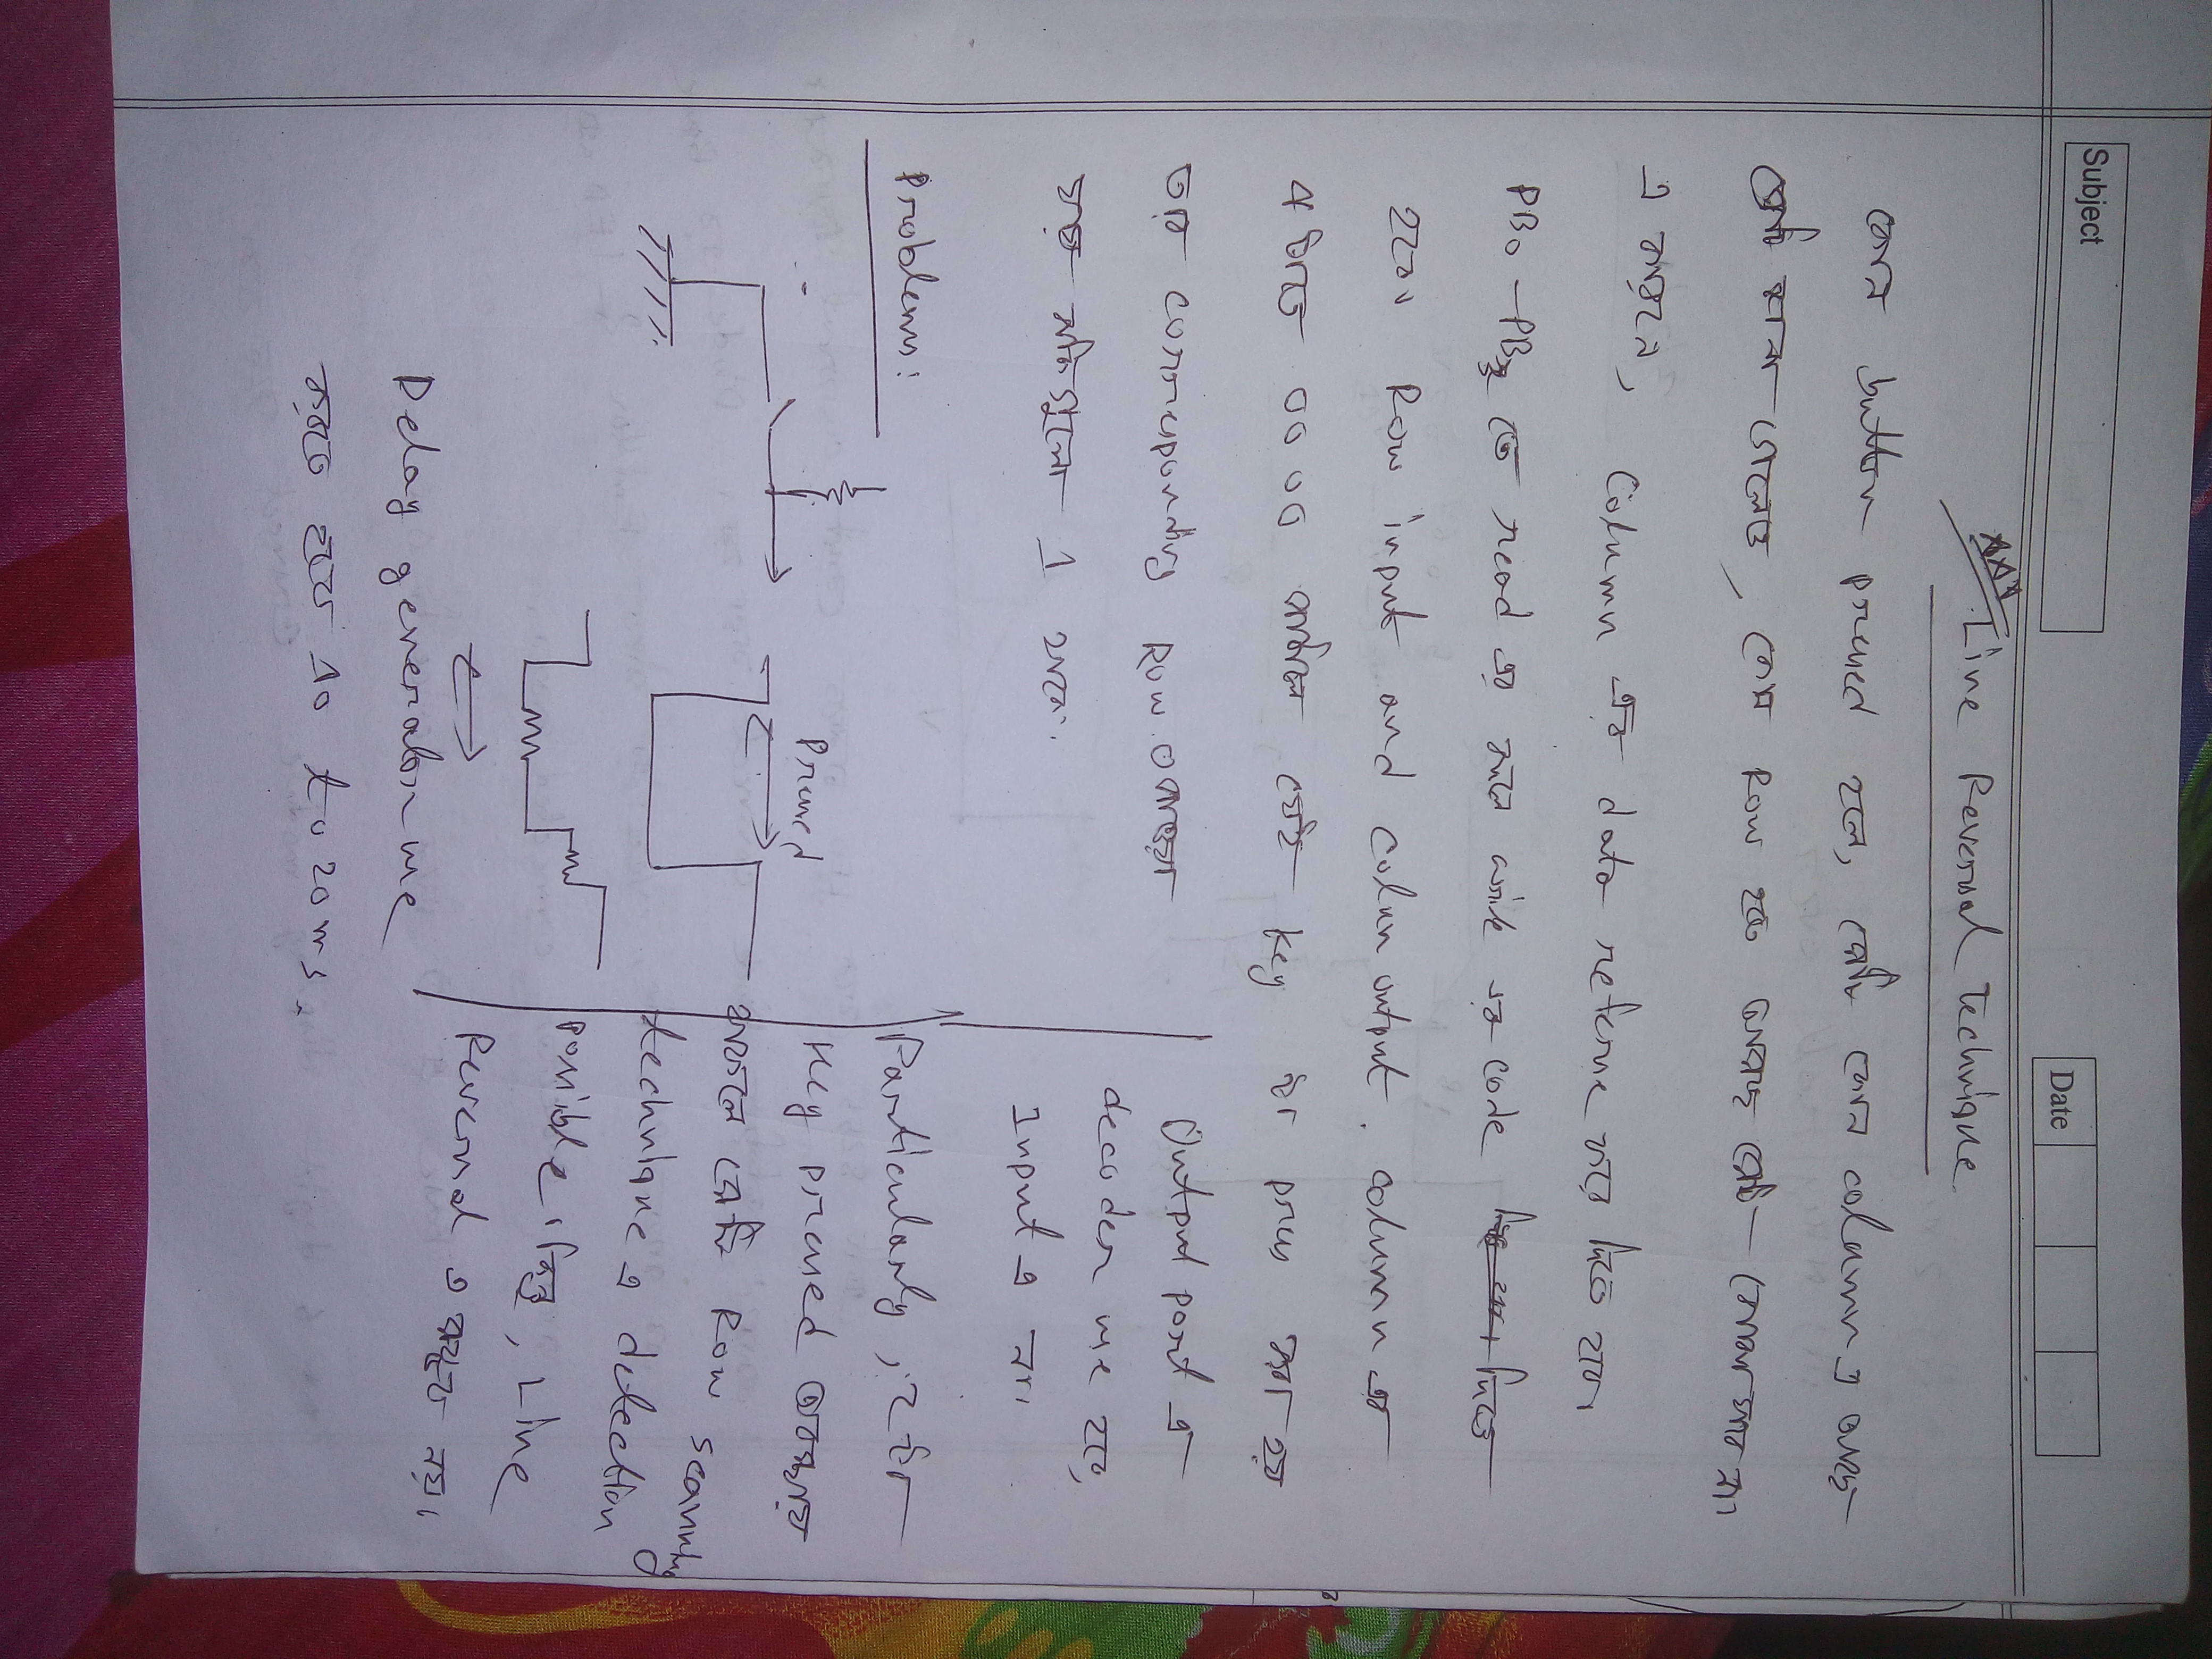 Subject
Date
Line Reversal Technique
কোন button pressed হলে, সেটি কোন column এ আছে
সেটি জানা গেলেও, কোন Row হতে আসছে সেটি বোঝা যাবে না।
এ কারনে, Column এর data reverse করে দিতে হবে।
PB0 - PB3 তে read এর বদলে write এর code দিতে
হবে। Row input and column output. column এর
৪ টাতে 0000 পাঠালে যেই key টা press করা হয়
তার corresponding Row 0 পাওয়া
যায় বাকিগুলো 1 থাকে.
Output port এ
decoder use হবে,
Input এ না।
Problems:
Pressed
Delay generator use
করতে হবে 10 to 20 ms.
Particularly, ২ টা
key pressed অবস্থায়
থাকলে সেটি Row scanning
technique এ detection
possible। কিন্তু, Line
Reversal এ সম্ভব নয়।